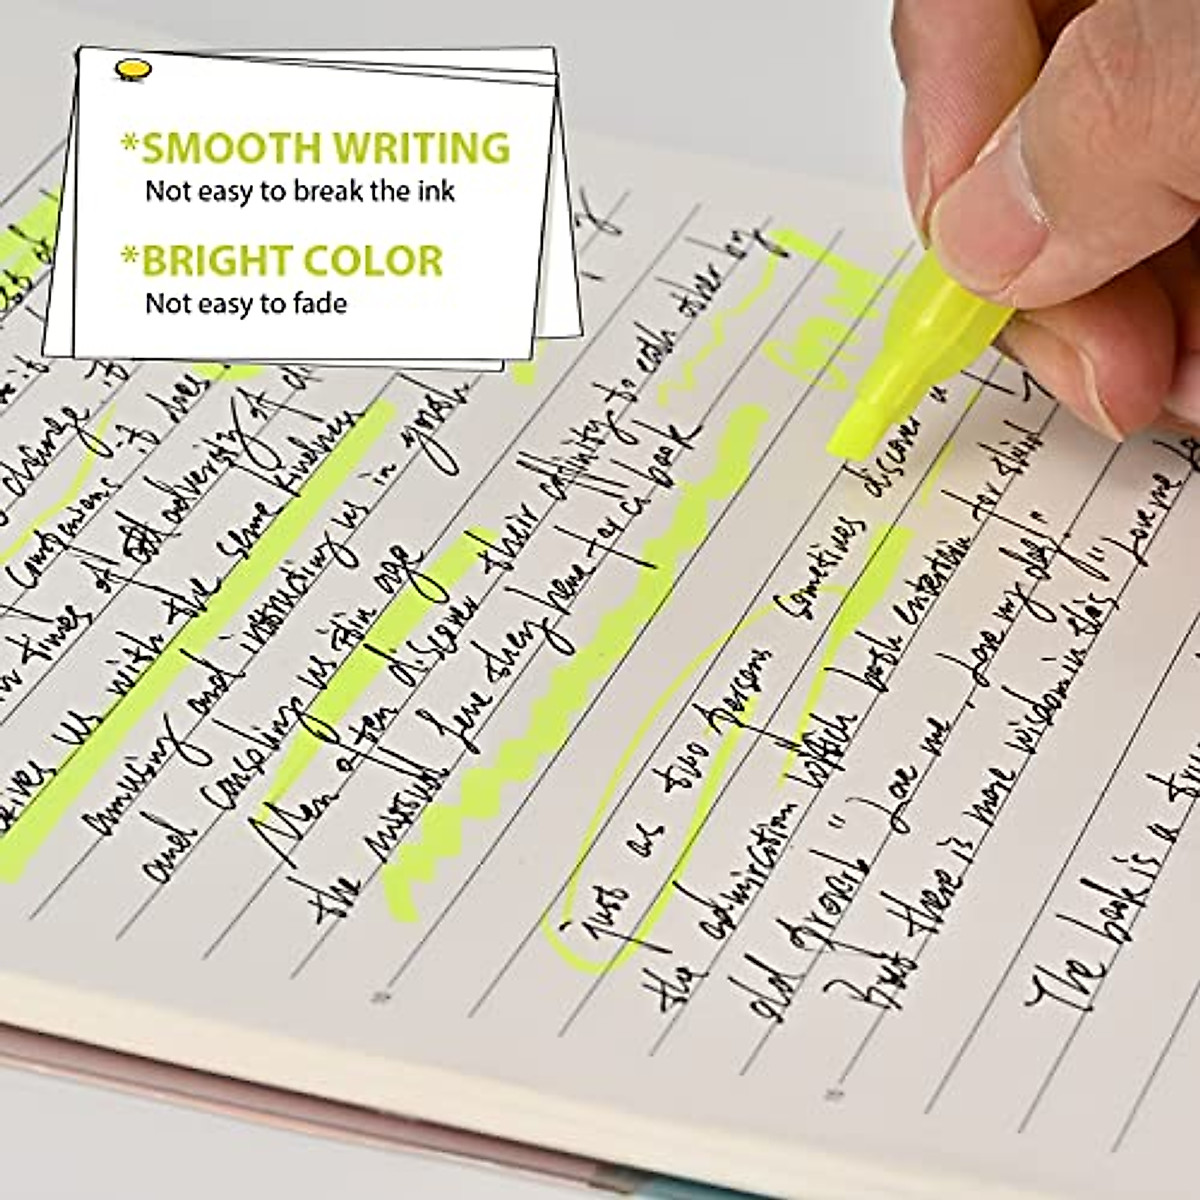 *SMOOTH WRITING
Not easy to break the ink
*BRIGHT COLOR
Not easy to fade
it does
in times of adversity
us with the same kindness
amusing and instructing us in youth
and comforting us in age
Men often discover their affinity to each other by
the mutual love they have for a book
just as two persons sometimes discover a
the admiration which both entertain for a third
old proverb "Love me, Love my dog."
But there is more wisdom in this," Love me
The book is a